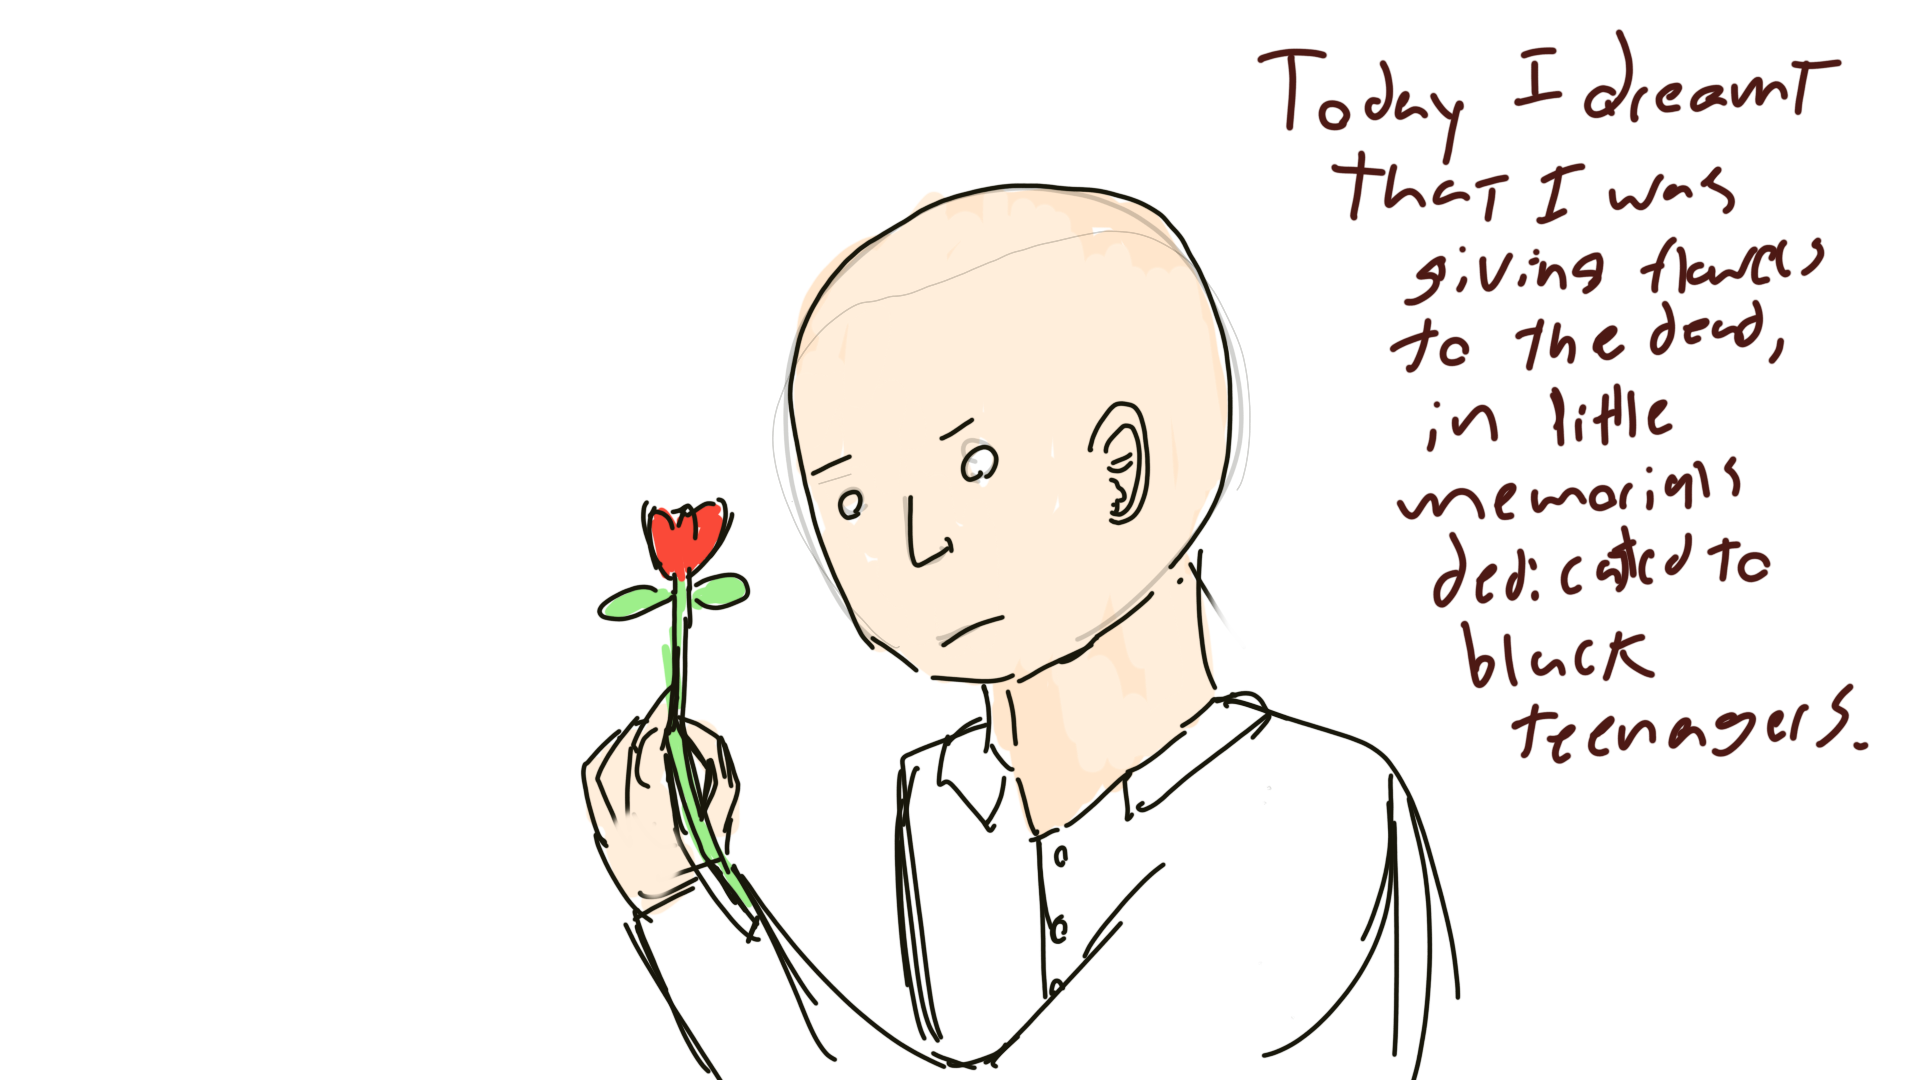 Today I dreamt
that I was
giving flowers
to the dead,
in little
memorials
dedicated to
black
teenagers.